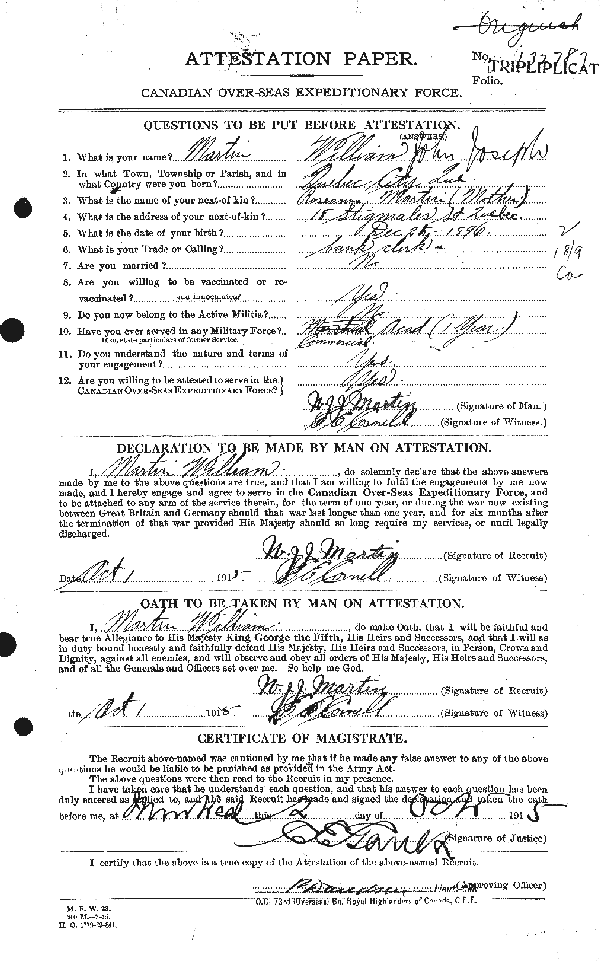 Original
ATTESTATION PAPER.
No.
TRIPLIPLICAT
Folio.
CANADIAN OVER-SEAS EXPEDITIONARY FORCE.
QUESTIONS TO BE PUT BEFORE ATTESTATION.
(ANSWERS)
1. What is your name? Martin William John Joseph
2. In what Town, Township or Parish, and in
what Country were you born? Quebec City Que
3. What is the name of your next-of-kin? Roseanna Martin (Mother)
4. What is the address of your next-of-kin? 15 St Quebec
5. What is the date of your birth? Dec 25, 1896
6. What is your Trade or Calling? bank clerk
7. Are you married? No
8. Are you willing to be vaccinated or re-
vaccinated? and inoculated Yes
9. Do you now belong to the Active Militia? No
10. Have you ever served in any Military Force? Acad (1 Year.)
If so, state particulars of former Service. Commercial
11. Do you understand the nature and terms of
your engagement? Yes
12. Are you willing to be attested to serve in the
CANADIAN OVER-SEAS EXPEDITIONARY FORCE? Yes
W.J.J. Martin (Signature of Man.)
(Signature of Witness.)
DECLARATION TO BE MADE BY MAN ON ATTESTATION.
I, Martin William, do solemnly declare that the above answers
made by me to the above questions are true, and that I am willing to fulfil the engagements by me now
made, and I hereby engage and agree to serve in the Canadian Over-Seas Expeditionary Force, and
to be attached to any arm of the service therein, for the term of one year, or during the war now existing
between Great Britain and Germany should that war last longer than one year, and for six months after
the termination of that war provided His Majesty should so long require my services, or until legally
discharged.
W.J.J. Martin (Signature of Recruit)
Date Oct 1 1915 (Signature of Witness)
OATH TO BE TAKEN BY MAN ON ATTESTATION.
I, Martin William, do make Oath, that I will be faithful and
bear true Allegiance to His Majesty King George the Fifth, His Heirs and Successors, and that I will as
in duty bound honestly and faithfully defend His Majesty, His Heirs and Successors, in Person, Crown and
Dignity, against all enemies, and will observe and obey all orders of His Majesty, His Heirs and Successors,
and of all the Generals and Officers set over me. So help me God.
W.J.J. Martin (Signature of Recruit)
Date Oct 1 1915 (Signature of Witness)
CERTIFICATE OF MAGISTRATE.
The Recruit above-named was cautioned by me that if he made any false answer to any of the above
questions he would be liable to be punished as provided in the Army Act.
The above questions were then read to the Recruit in my presence.
I have taken care that he understands each question, and that his answer to each question has been
duly entered as replied to, and the said Recruit has made and signed the declaration and taken the oath
before me, at Montreal this 2 Oct 1915
(Signature of Justice)
I certify that the above is a true copy of the Attestation of the above-named Recruit.
(Approving Officer)
O.C. 73rd (Overseas) Bn. Royal Highlanders of Canada, C.E.F.
M. F. W. 23.
H. Q. 1772-39-841.